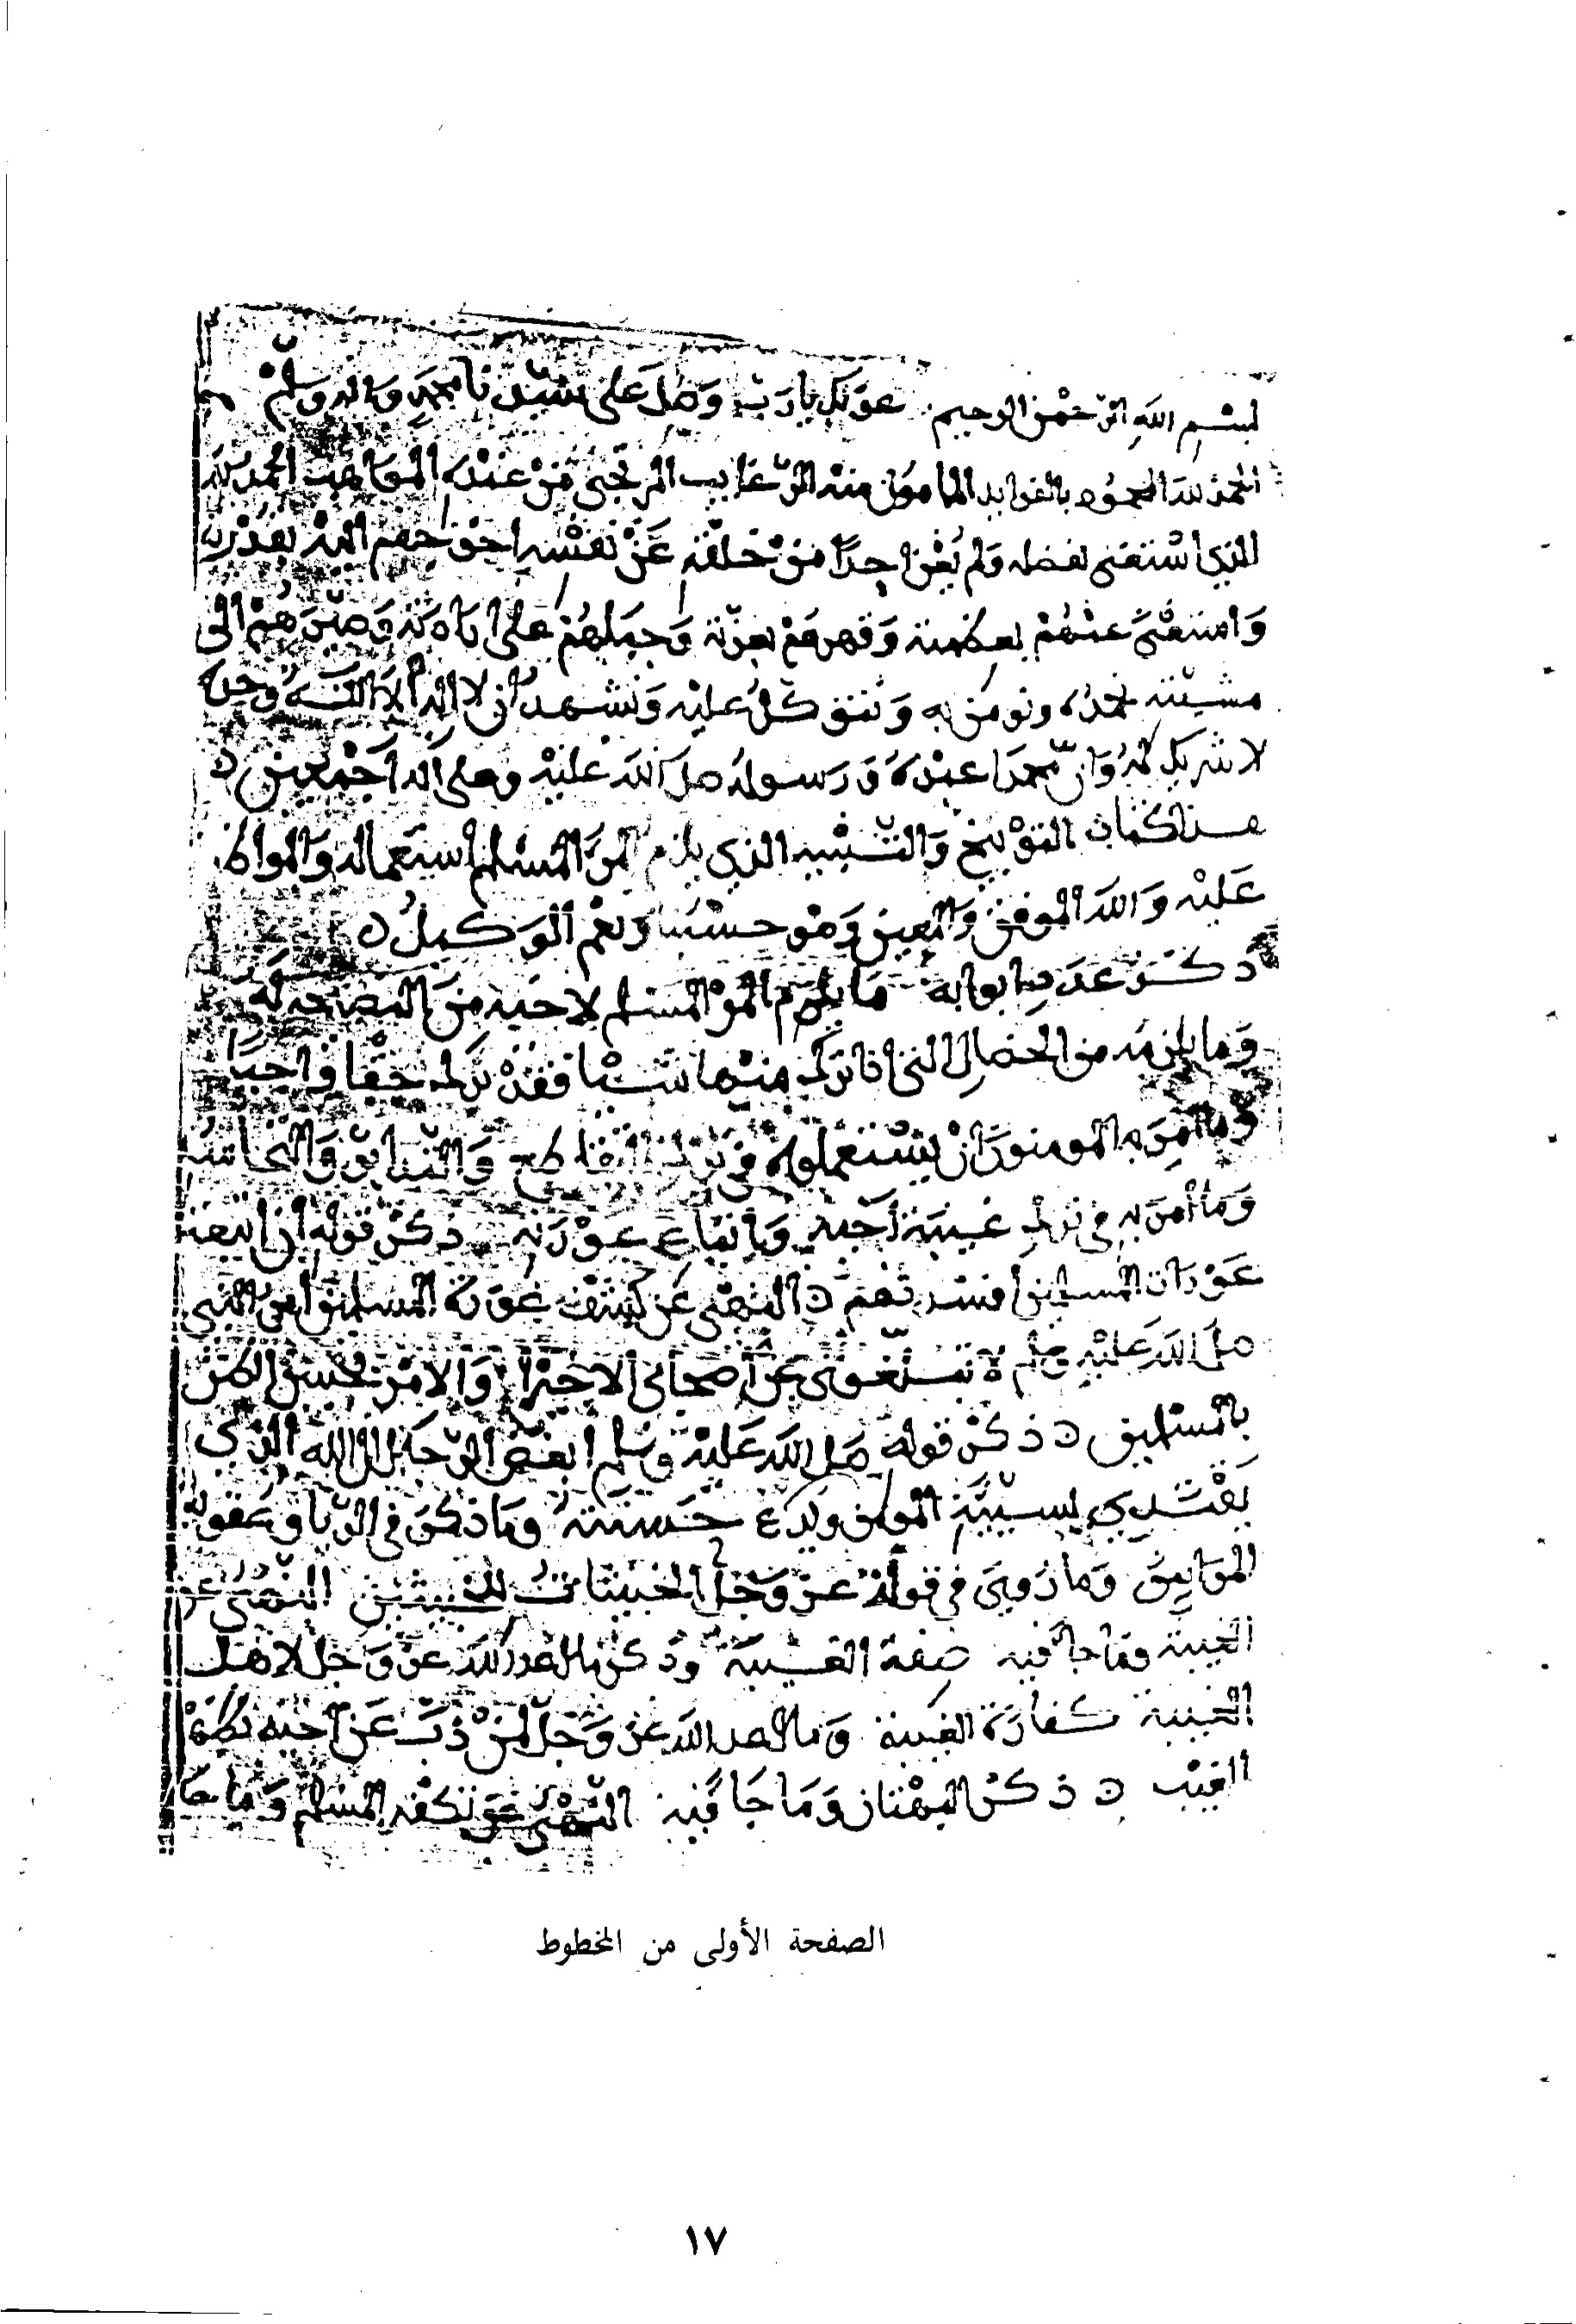 بسم الله الرحمن الرحيم عونك يا رب وصل على سيدنا محمد واله وسلم
الحمد لله المحمود بالفوايد المامول منه الرغايب المرتجى من عنده المواهب الحمد لله
الذي استغنى بفضله ولم يغن احدا من خلقه عن نفسه احوجهم اليه بقدرته
وامتنع عنهم بعظمته وقهرهم بعزته وجبلهم على ارادته وصيرهم الى
مشيئته نحمده ونومن به ونتوكل عليه ونشهد ان لا اله الا الله وحده
لا شريك له وان محمدا عبده ورسوله صلى الله عليه وعلى اله اجمعين
هذا كتاب التوبيخ والتنبيه الذي يلزم المرء المسلم استعماله والمواظبة
عليه والله الموفق والمعين وهو حسبنا ونعم الوكيل
ذكر عدد ابوابه ما يلزم المرء المسلم لاخيه من النصيحة له
وما يلزمه من الخصال التي اذا ترك منها شيئا فقد ترك حقا واجبا
وما امر به المومنون ان يستعملوه في ترك التقاطع والتدابر والتحاسد
وما امر به في ترك غيبة اخيه واتباع عورته ذكر قوله ان اتبعت
عورات المسلمين افسدتهم النهي عن كشف عورة المسلمين امر النبي
صلى الله عليه وسلم لا تبلغوني عن اصحابي الا خيرا والامر بحسن الظن
بالمسلمين ذكر قوله صلى الله عليه وسلم ابغض الرجال الى الله الذي
يقتدي بسيئة المومن ويدع حسنته وما ذكر في الربا وعقوبة
المرابين وما روي في قوله عز وجل الخبيثات للخبيثين النهي عن
الغيبة وما جا فيه صفة الغيبة وذكر ما اعد الله عز وجل لاهل
الغيبة كفارة الغيبة وما اعد الله عز وجل لمن ذب عن اخيه بظهر
الغيب ذكر البهتان وما جا فيه النهي عن تكفير المسلم وما جا
الصفحة الأولى من المخطوط
١٧